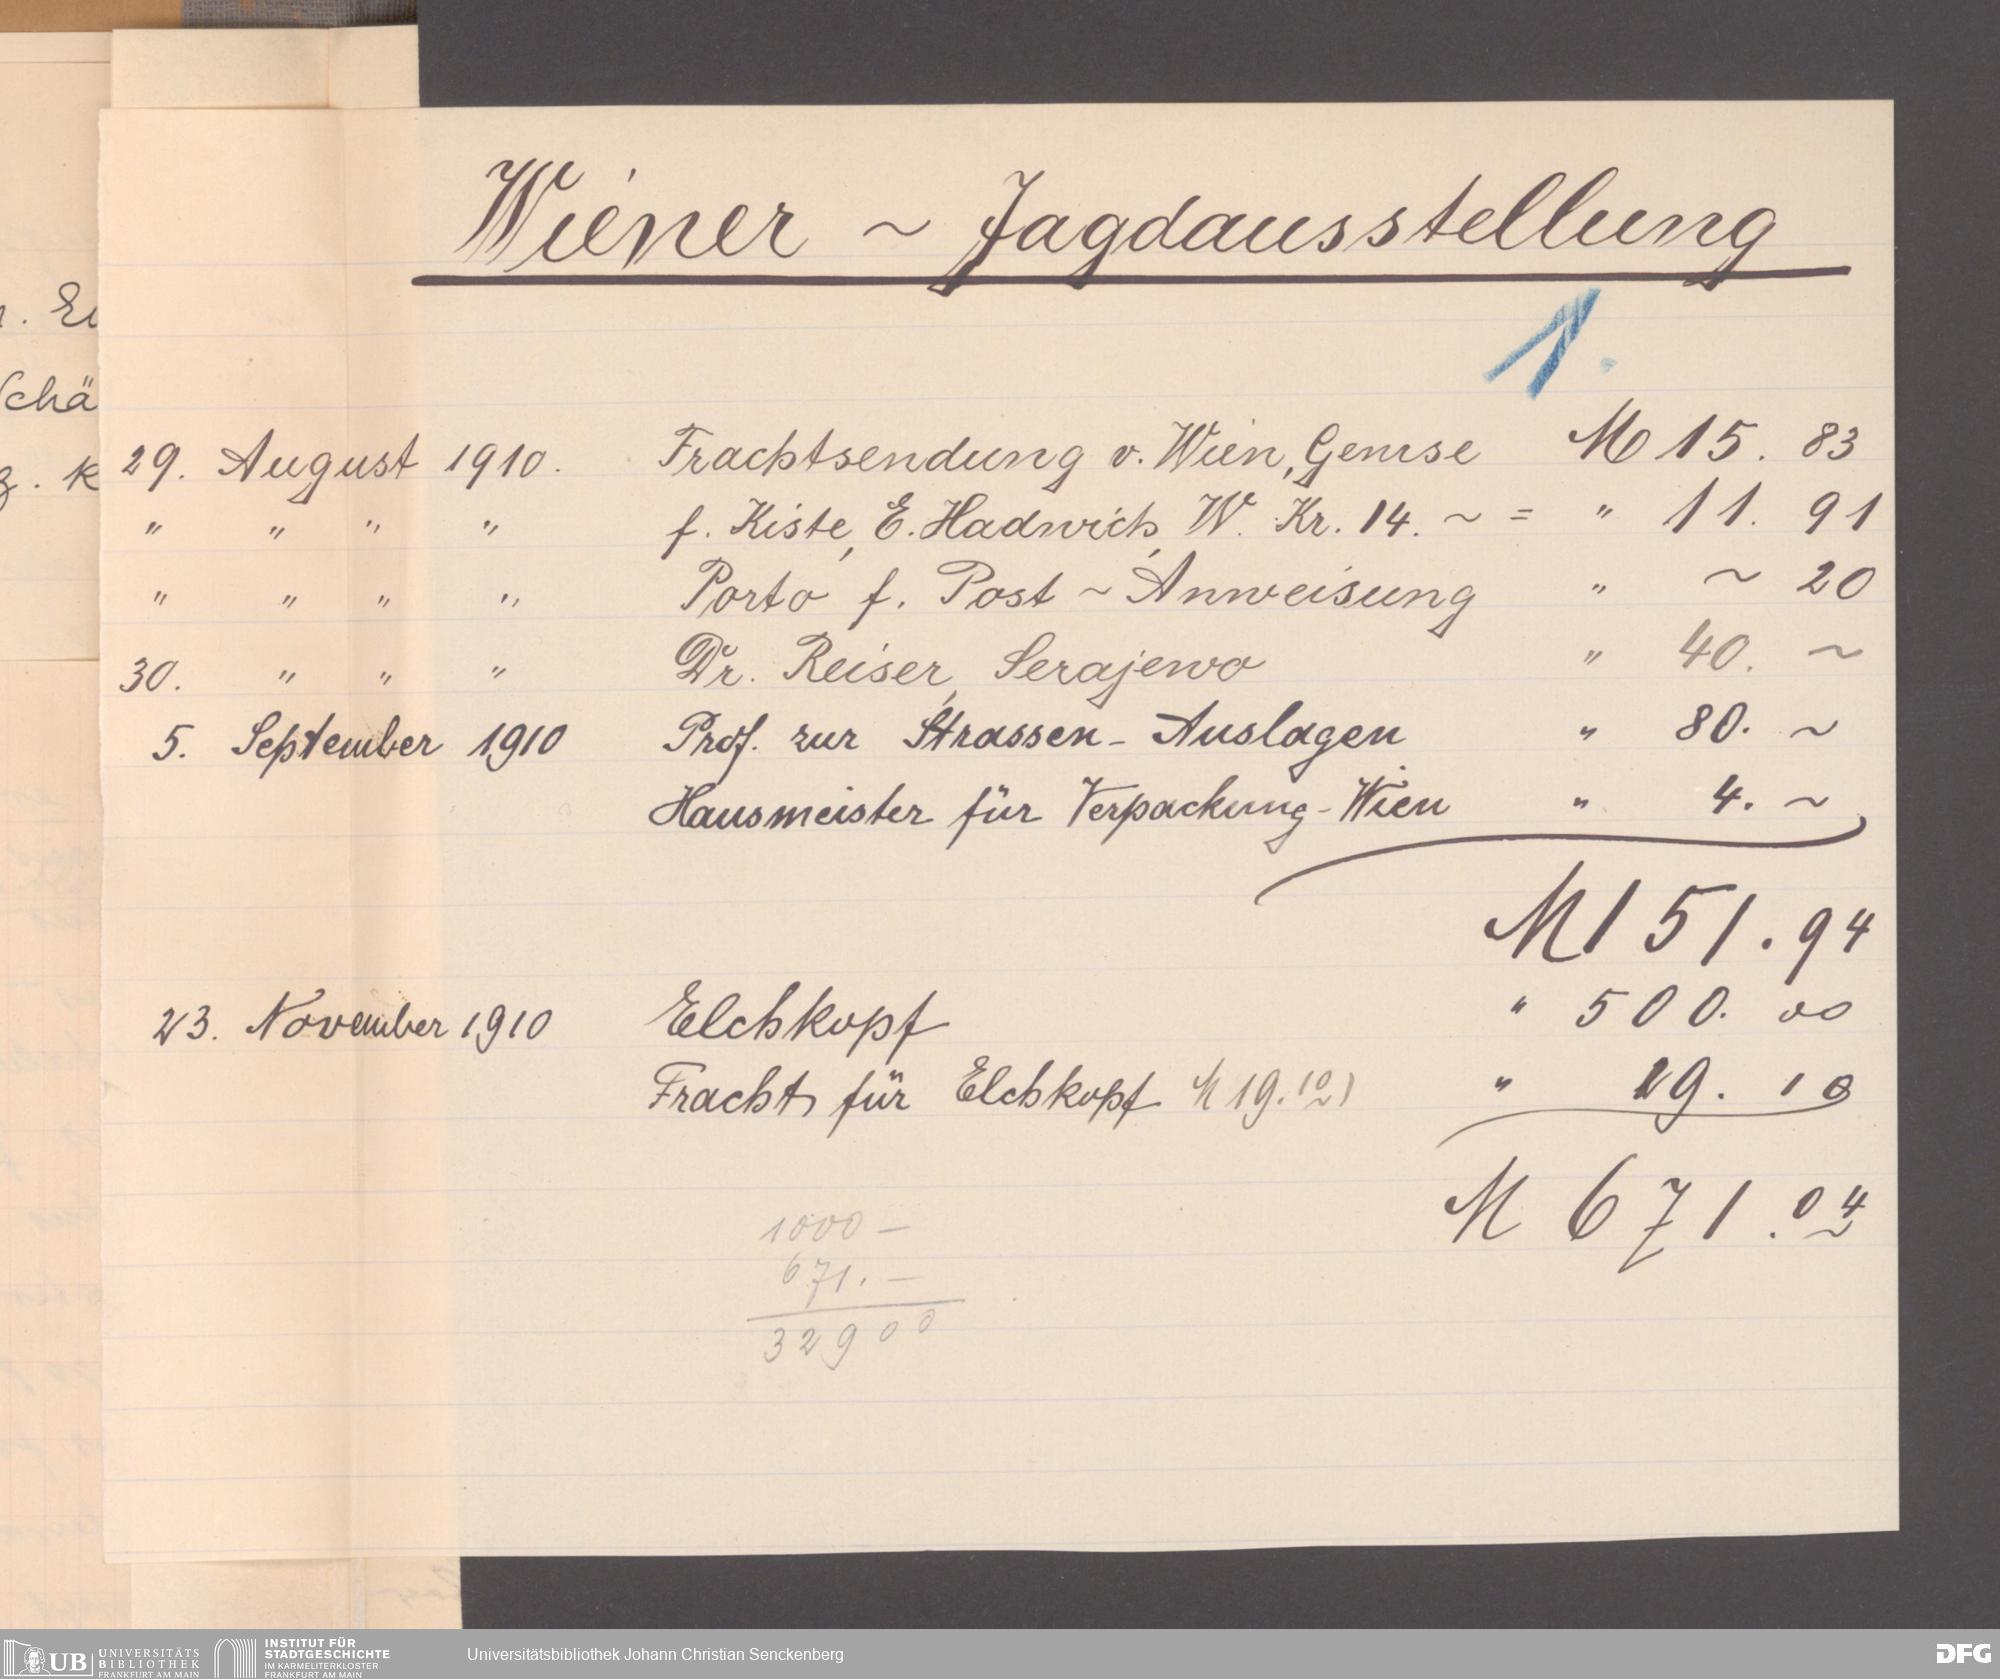 Wiener ~ Jagdausstellung
1.
29. August 1910. Frachtsendung v. Wien, Gemse M 15. 83
" " " " f. Kiste, E. Hadwich, W. Kr. 14. ~ = " 11. 91
" " " " Porto f. Post ~ Anweisung " ~ 20
30. " " " Dr. Reiser, Serajewo " 40. ~
5. September 1910 Prof. zur Strassen - Auslagen " 80. ~
Hausmeister für Verpackung - Wien " 4. ~
M 151. 94
23. November 1910 Elchkopf " 500. 00
Fracht für Elchkopf M 19. 10) " 19. 10
M 671. 04
1000 —
671. —
329 00
Schä
UB UNIVERSITÄTS BIBLIOTHEK FRANKFURT AM MAIN
INSTITUT FÜR STADTGESCHICHTE IM KARMELITERKLOSTER FRANKFURT AM MAIN
Universitätsbibliothek Johann Christian Senckenberg
DFG